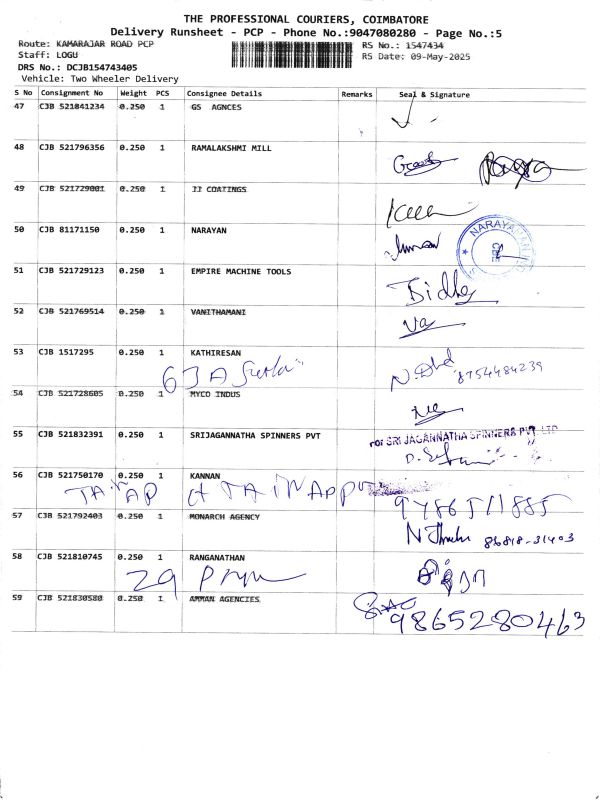 THE PROFESSIONAL COURIERS, COIMBATORE
Delivery Runsheet - PCP - Phone No.:9047080280 - Page No.:5
Route: KAMARAJAR ROAD PCP RS No.: 1547434
Staff: LOGU RS Date: 09-May-2025
DRS No.: DCJB154743405
Vehicle: Two Wheeler Delivery
S No Consignment No Weight PCS Consignee Details Remarks Seal & Signature
47 CJB 521841234 0.250 1 GS AGNCES
48 CJB 521796356 0.250 1 RAMALAKSHMI MILL
49 CJB 521729001 0.250 1 JJ COATINGS
50 CJB 81171150 0.250 1 NARAYAN
51 CJB 521729123 0.250 1 EMPIRE MACHINE TOOLS
52 CJB 521769514 0.250 1 VANITHAMANI
53 CJB 1517295 0.250 1 KATHIRESAN
8754484239
54 CJB 521728605 0.250 1 MYCO INDUS
55 CJB 521832391 0.250 1 SRIJAGANNATHA SPINNERS PVT
For SRI JAGANNATHA SPINNERS PVT LTD
56 CJB 521750170 0.250 1 KANNAN
57 CJB 521792403 0.250 1 MONARCH AGENCY
86818-31403
58 CJB 521810745 0.250 1 RANGANATHAN
29
59 CJB 521830580 0.250 1 AMMAN AGENCIES
9865280463